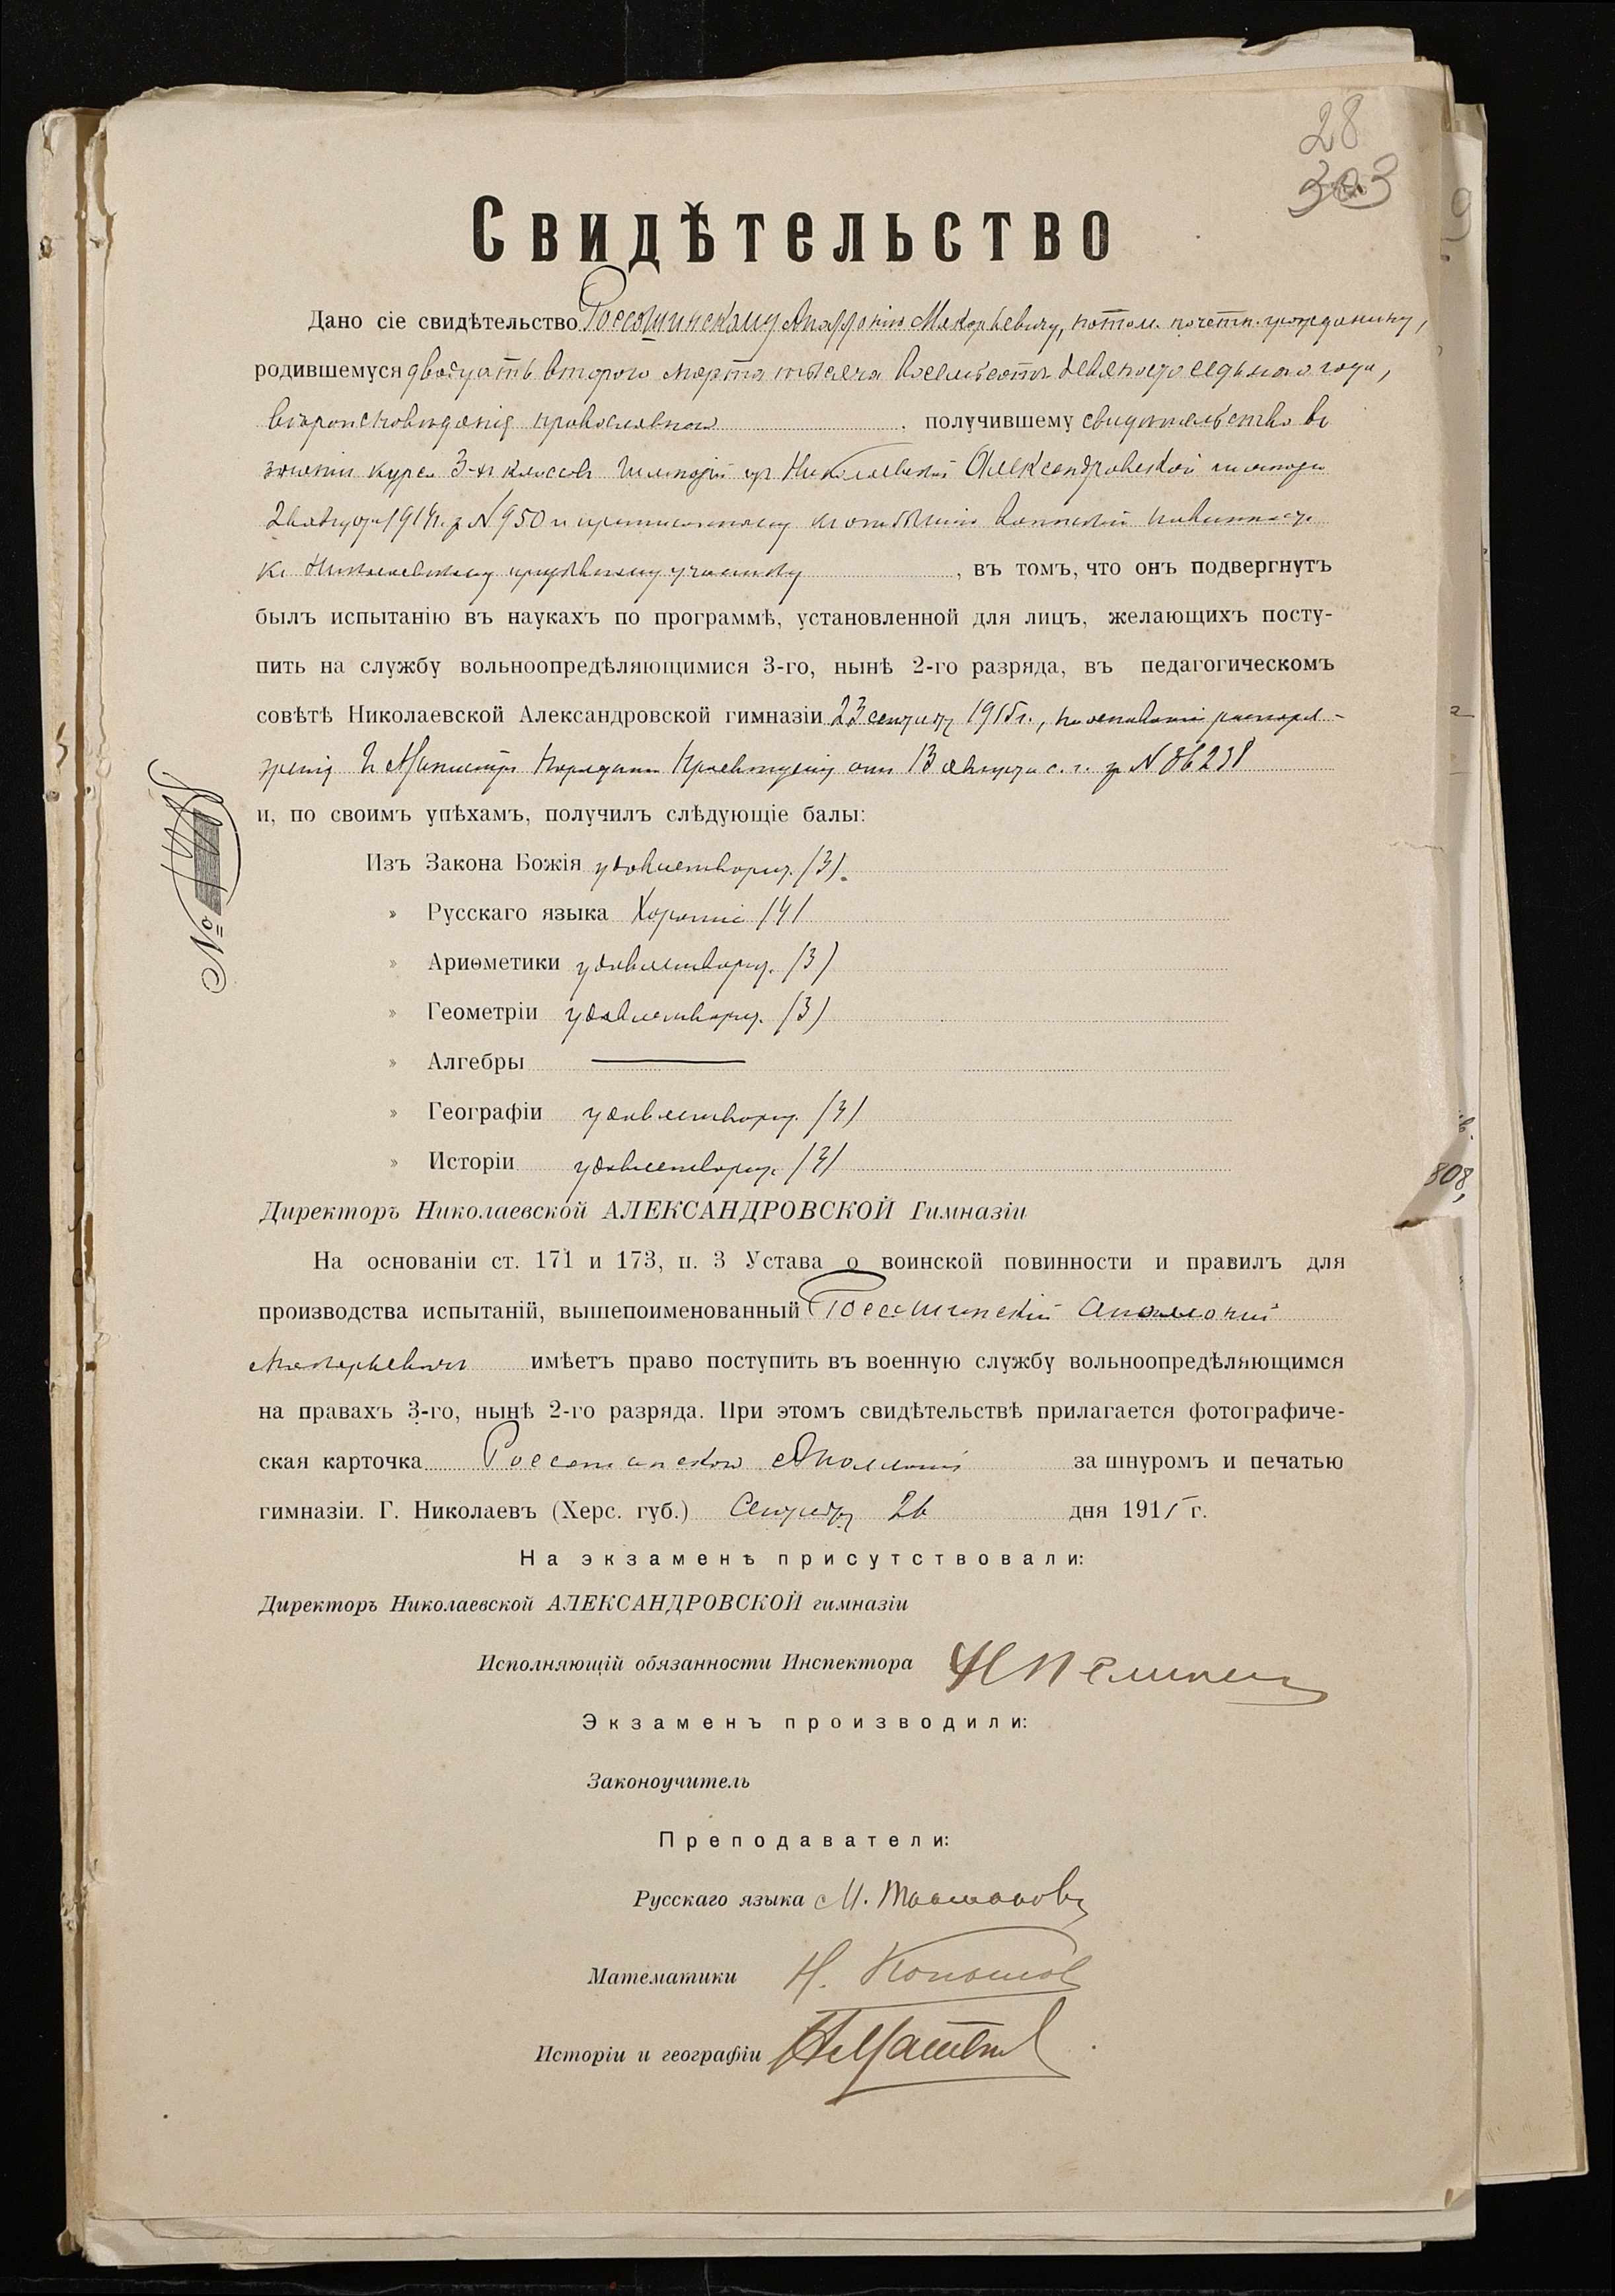 28
303
Свидѣтельство
Дано сіе свидѣтельство Россошинскому Макарьевичу, потом. почетн. гражданину,
родившемуся двадцать второго марта тысяча восемьсотъ девяносто седьмого года,
вѣроисповѣданія православнаго, получившему свидѣтельство въ
знаніи курса 3-хъ классовъ гимназіи изъ Николаевской Александровской гимназіи
1914 г. за №950 и приписанному къ отбыванію воинской повинности
къ Николаевскому призывному участку, въ томъ, что онъ подвергнутъ
былъ испытанію въ наукахъ по программѣ, установленной для лицъ, желающихъ посту-
пить на службу вольноопредѣляющимися 3-го, нынѣ 2-го разряда, въ педагогическомъ
совѣтѣ Николаевской Александровской гимназіи 23 сентября 1915 г., на основаніи распоря-
женія Г. Министра Народнаго Просвѣщенія отъ 13 августа с. г. за №
и, по своимъ упѣхамъ, получилъ слѣдующіе балы:
№
Изъ Закона Божія удовлетворит. (3).
» Русскаго языка Хорошіе (4)
» Ариѳметики удовлетворит. (3)
» Геометріи удовлетворит. (3)
» Алгебры —
» Географіи удовлетворит. (3)
» Исторіи удовлетворит. (3)
808,
Директоръ Николаевской АЛЕКСАНДРОВСКОЙ Гимназіи
На основаніи ст. 171 и 173, п. 3 Устава о воинской повинности и правилъ для
производства испытаній, вышепоименованный Россошинскій Аполлоній
Макарьевичъ имѣетъ право поступить въ военную службу вольноопредѣляющимся
на правахъ 3-го, нынѣ 2-го разряда. При этомъ свидѣтельствѣ прилагается фотографиче-
ская карточка Россошинского Аполлонія за шнуромъ и печатью
гимназіи. Г. Николаевъ (Херс. губ.) Сентября 26 дня 1915 г.
На экзаменѣ присутствовали:
Директоръ Николаевской АЛЕКСАНДРОВСКОЙ гимназіи
Исполняющій обязанности Инспектора
Экзаменъ производили:
Законоучитель
Преподаватели:
Русскаго языка М.
Математики Н.
Исторіи и географіи